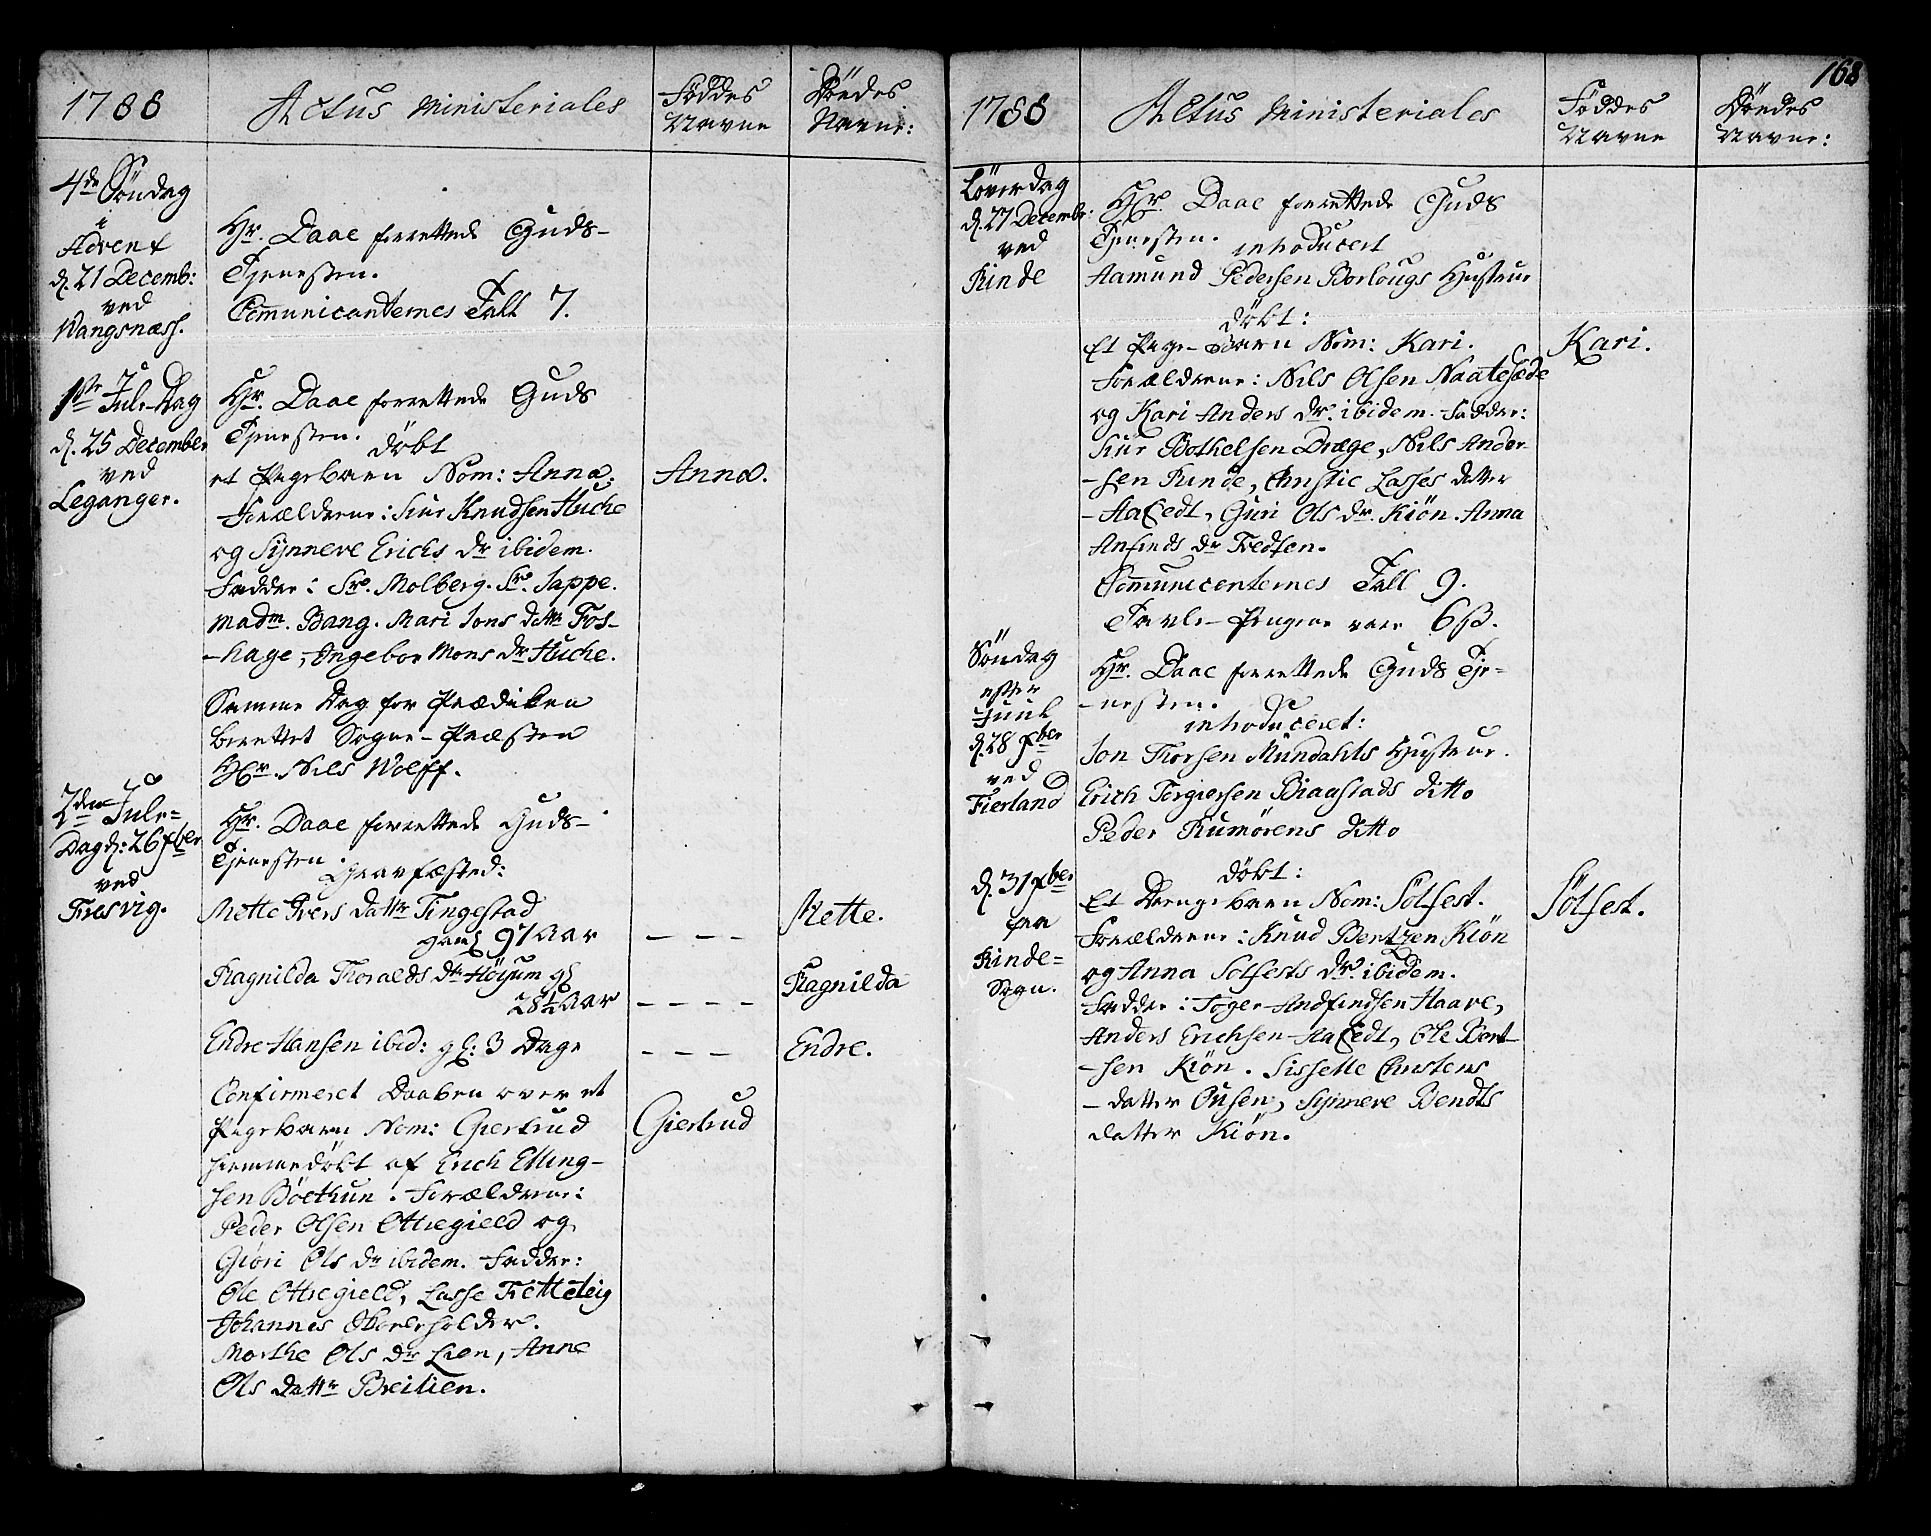 1788
Actus Ministeriales
Föddes
Navne
Döedes
Navne:
4de Söndag
i
Advent
d. 21 Decemb:
ved
Wangsnæss.
Hr. Daae forrettede Guds-
Tjenesten.
Communicanternes Tall 7.
1ste Jule-Dag
d. 25 December
ved
Leganger.
Hr. Daae forrettede Guds
Tjenesten.
döbt
et Pigebarn Nom: Anna.
Anna.
Forældrene: Siur Knudsen Huche
og Synneve Erichs dr ibidem.
Faddere: Sr. Molberg. Sr. Jappe.
Madm. Bang. Mari Jons dattr Fos-
-hage, Ingebor Mons dr Huche.
Samme Dag for Prædiken
berettet Sogne-Præsten
Hr. Nils Wolff.
2den Jule-
Dag d: 26 Xber
ved
Fresvig.
Hr. Daae forrettede Guds-
Tjenesten.
Gravfæsted:
Mette Ivers dattr Tingestad
gaml 97 Aar
- - -
Mette.
Ragnilda Thoralds dr Höyum gl
28½ Aar
- - - -
Ragnilda
Endre Hansen ibid: gl: 3 Dage
- - -
Endre.
Confirmeret Daaben over et
Pigebarn Nom: Giertrud
Giertrud
hiemmedöbt af Erich Elling-
sen Böethun. Forældrene:
Peder Olsen Ottregield og
Giöri Ols dr ibidem. Faddere:
Ole Ottregield, Lasse Tretteteig
Johannes
Marthe Ols dr Lien, Anne
Ols dattr Breilien.
168
1788
Actus Ministeriales
Föddes
Navne
Döedes
Navne:
Löverdag
d. 27 Decembr:
ved
Rinde
Hr. Daae forrettede Guds
Tjenesten.
introducert
Aamund Pedersen Borlougs Hustrue
döbt:
Et Pige-Barn Nom: Kari.
Kari.
Forældrene: Nils Olsen Naatesæde
og Kari Anders dr. ibidem. Faddere:
Siur Bothelsen Dræge, Nils Ander
-sen Rinde, Christie Lasses datter
-Aafedt, Guri Ols dr. Kiön. Anna
Anfinds dr Tredsen.
Communicanternes Tall 9.
Tavle-Pengene vare 6 ß.
Söndag
efter
Juul
d. 28 Xber
ved
Fierland
Hr. Daae forrettede Guds Tje-
-nesten.
introduceret:
Jon Thorsen Mundahls Hustrue.
Erich Torgiersen Biaastads ditto
Peder Rumörens ditto
d. 31 Xber
paa
Rinde-
Sogn.
döbt:
Et Drengebarn Nom: Sölfest.
Sölfest.
Forældrene: Knud Bertzen Kiön
og Anna Solfests dr. ibidem.
Faddere: Toger Andfindsen Haave,
Anders Erichsen Aafedt, Ole Bert-
-sen Kiön. Sissette Christens
-datter Ousen, Synneve Bendts
datter Kiön.